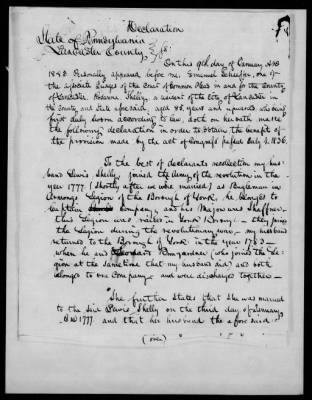 Declaration
State of Pennsylvania
Lancaster County, ss
On this 9th day of January AD
1838. Personally appeared before me. Emanuel Schaeffer, one of
the associate Judges of the Court of Common Pleas in and for the County
of Lancaster. Shelly, a resident of the City of Lancaster in
the County and State aforesaid, aged 85 years and upwards, who being
first duly sworn according to law, doth on her oath make the
following declaration in order to obtain the benefit of
the provision made by the act of Congress passed July 4. 1836.
To the best of declarants recollection my hus
band Lewis Shelly, joined the Army of the revolution in the
year 1777 (Shortly after we was married) as Bugleman in
Armongs Legion of the Borough of York. he belonged to
Captain Company, and his Major was Shaffner.
this Legion was raised in York Borough— they joined
the Legion during the revolutionary war, — my husband
returned to the Borough of York in the year 1783 —
when he and Bumgardner (who joined the Le-
gion at the same time that my husband did) and both
belonged to one Company — and were discharged together —
She further States that she was married
to the said Lewis Shelly on the third day of January
AD 1777 and that her husband the aforesaid
(over)